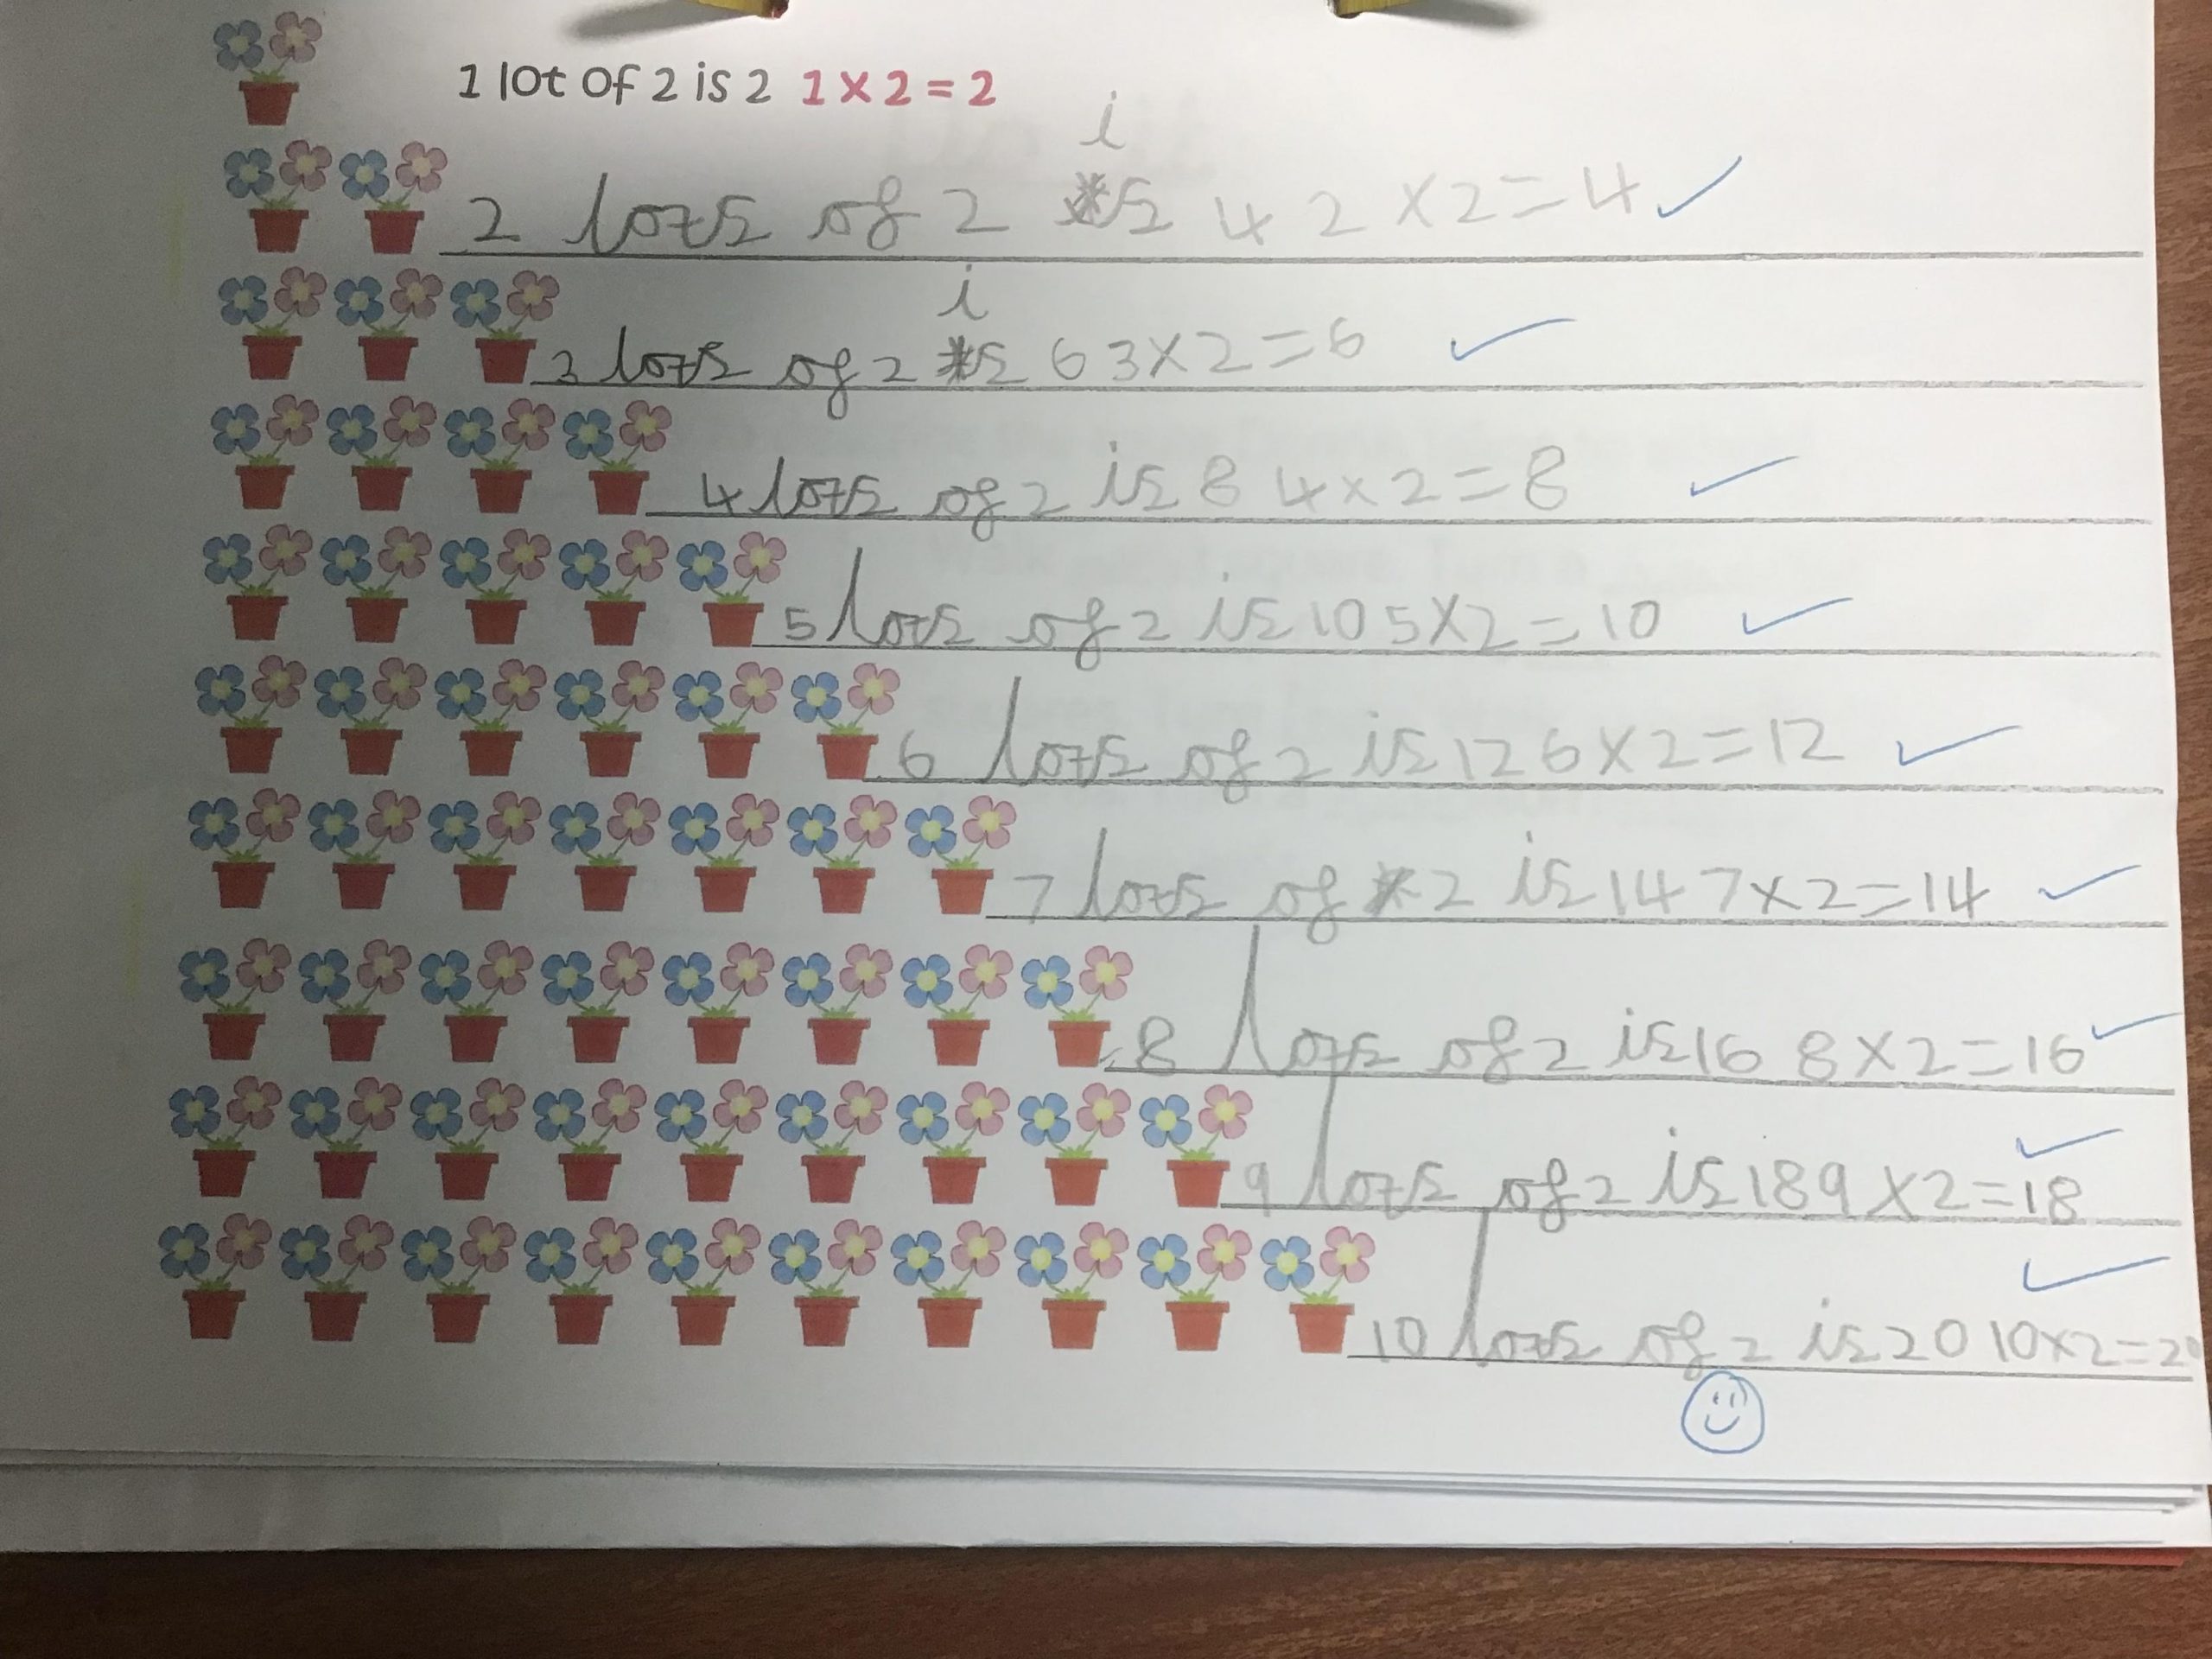 1 lot of 2 is 2 1 x 2 = 2
2 lots of 2 is 4 2 x 2 = 4
3 lots of 2 is 6 3 x 2 = 6
4 lots of 2 is 8 4 x 2 = 8
5 lots of 2 is 10 5 x 2 = 10
6 lots of 2 is 12 6 x 2 = 12
7 lots of 2 is 14 7 x 2 = 14
8 lots of 2 is 16 8 x 2 = 16
9 lots of 2 is 18 9 x 2 = 18
10 lots of 2 is 20 10 x 2 = 20